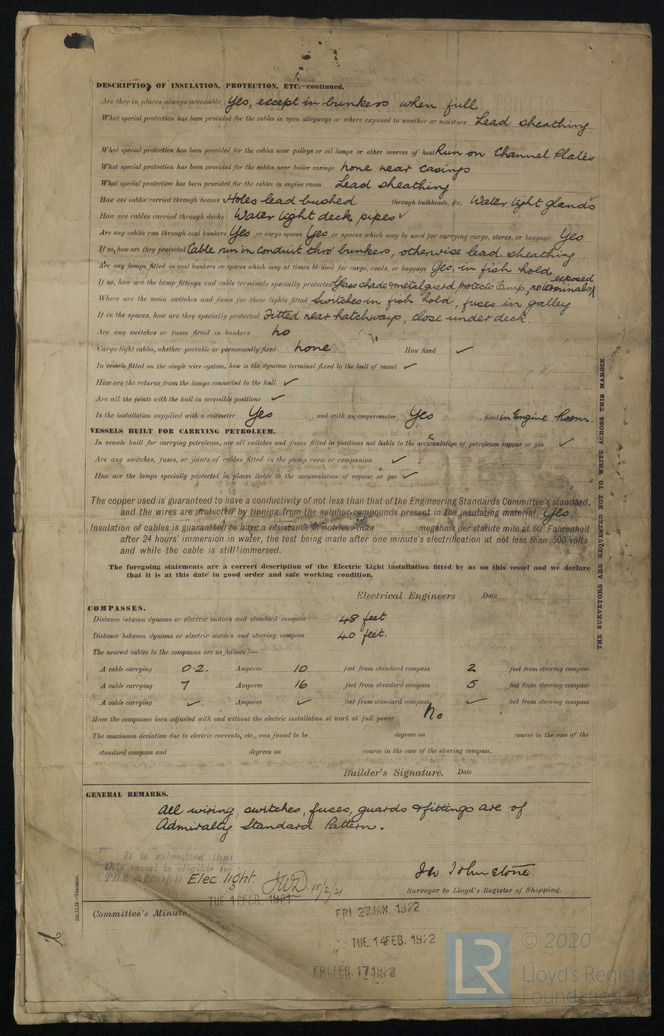 DESCRIPTION OF INSULATION, PROTECTION, ETC.—continued.
Are they in places always accessible Yes, except in bunkers when full
What special protection has been provided for the cables in open alleyways or where exposed to weather or moisture Lead sheathing
What special protection has been provided for the cables near galleys or oil lamps or other sources of heat Run on Channel Plates
What special protection has been provided for the cables near boiler casings none near casings
What special protection has been provided for the cables in engine room Lead sheathing
How are cables carried through beams Holes lead bushed through bulkheads, &c. Water tight glands
How are cables carried through decks Water tight deck pipes ✓
Are any cables run through coal bunkers Yes or cargo spaces Yes or spaces which may be used for carrying cargo, stores, or baggage Yes
If so, how are they protected Cable run in conduit thro' bunkers, otherwise lead sheathing
Are any lamps fitted in coal bunkers or spaces which may at times be used for cargo, coals, or baggage Yes, in fish hold
If so, how are the lamp fittings and cable terminals specially protected Glass shade & metal guard protects lamp, no exposed terminals
Where are the main switches and fuses for these lights fitted Switches in fish hold, fuses in galley
If in the spaces, how are they specially protected Fitted near hatchways, close under deck.
Are any switches or fuses fitted in bunkers no
Cargo light cables, whether portable or permanently fixed none How fixed ✓
In vessels fitted on the single wire system, how is the dynamo terminal fixed to the hull of vessel ✓
How are the returns from the lamps connected to the hull ✓
Are all the joints with the hull in accessible positions ✓
Is the installation supplied with a voltmeter Yes and with an amperemeter Yes fixed in Engine Room
VESSELS BUILT FOR CARRYING PETROLEUM.
In vessels built for carrying petroleum, are all switches and fuses fitted in positions not liable to the accumulation of petroleum vapour or gas ✓
Are any switches, fuses, or joints of cables fitted in the pump room or companion ✓
How are the lamps specially protected in places liable to the accumulation of vapour or gas ✓
The copper used is guaranteed to have a conductivity of not less than that of the Engineering Standards Committee's standard,
and the wires are protected by tinning from the sulphur compounds present in the insulating material. Yes.
Insulation of cables is guaranteed to have a resistance of not less than megohms per statute mile at 60° Fahrenheit
after 24 hours' immersion in water, the test being made after one minute's electrification at not less than 500 volts
and while the cable is still immersed.
The foregoing statements are a correct description of the Electric Light installation fitted by us on this vessel and we declare
that it is at this date in good order and safe working condition.
Electrical Engineers Date
COMPASSES.
Distance between dynamo or electric motors and standard compass 48 feet
Distance between dynamo or electric motors and steering compass 40 feet.
The nearest cables to the compasses are as follows:—
A cable carrying 0.2. Amperes 10 feet from standard compass 2 feet from steering compass
A cable carrying 7 Amperes 16 feet from standard compass 5 feet from steering compass
A cable carrying ✓ Amperes ✓ feet from standard compass ✓ feet from steering compass
Have the compasses been adjusted with and without the electric installation at work at full power No
The maximum deviation due to electric currents, etc., was found to be degrees on course in the case of the
standard compass and degrees on course in the case of the steering compass.
Builder's Signature. Date
GENERAL REMARKS.
All wiring, switches, fuses, guards & fittings are of
Admiralty Standard Pattern.
It is submitted that
this vessel is eligible for
THE RECORD Elec. light.
JWD 15/2/21
Jw Johnstone
Surveyor to Lloyd's Register of Shipping.
TUE. 15 FEB. 1921
Committee's Minute
FRI. 27 JAN. 1922
TUE. 14 FEB. 1922
FRI. FEB. 17 1922
THE SURVEYORS ARE REQUESTED NOT TO WRITE ACROSS THIS MARGIN
LR
© 2020
Lloyd's Register
Foundation